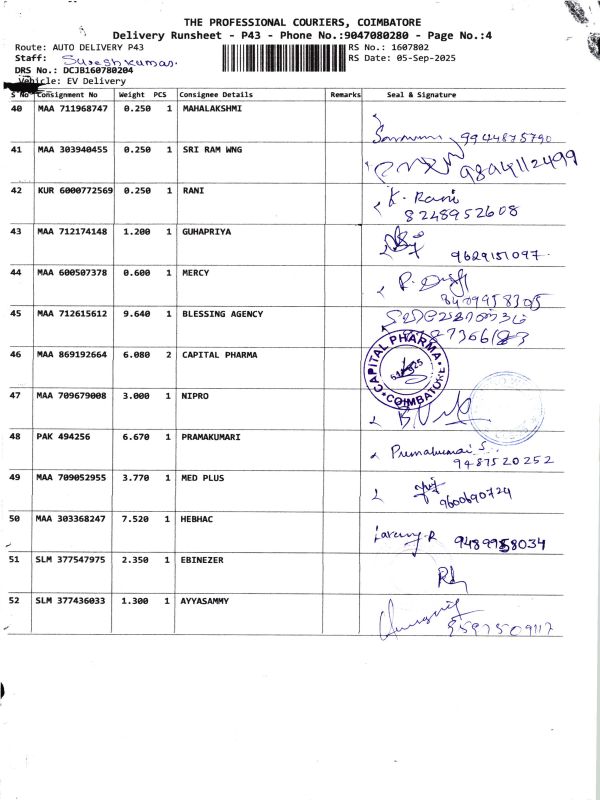 THE PROFESSIONAL COURIERS, COIMBATORE
Delivery Runsheet - P43 - Phone No.:9047080280 - Page No.:4
Route: AUTO DELIVERY P43 RS No.: 1607802
Staff: Sureshkumar. RS Date: 05-Sep-2025
DRS No.: DCJB160780204
Vehicle: EV Delivery
S No Consignment No Weight PCS Consignee Details Remarks Seal & Signature
40 MAA 711968747 0.250 1 MAHALAKSHMI
9944875790
41 MAA 303940455 0.250 1 SRI RAM WNG
9894112499
42 KUR 6000772569 0.250 1 RANI K. Rani
8248952608
43 MAA 712174148 1.200 1 GUHAPRIYA
9629151097.
44 MAA 600507378 0.600 1 MERCY
45 MAA 712615612 9.640 1 BLESSING AGENCY
46 MAA 869192664 6.080 2 CAPITAL PHARMA CAPITAL PHARMA
COIMBATORE
47 MAA 709679008 3.000 1 NIPRO
48 PAK 494256 6.670 1 PRAMAKUMARI Premakumari S.
9487520252
49 MAA 709052955 3.770 1 MED PLUS
9600690724
50 MAA 303368247 7.520 1 HEBHAC
9489958034
51 SLM 377547975 2.350 1 EBINEZER
52 SLM 377436033 1.300 1 AYYASAMMY
9597509117